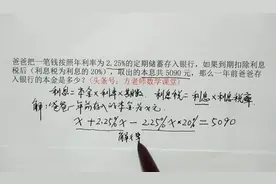 爸爸把一笔钱按照年利率为2.25%的定期储蓄存入银行,如果到期扣除利息
税后(利息税为利息的20%),取出的本息共5090元,那么一年前爸爸存
入银行的本金是多少?(头条号:方老师数学课堂)
利息=本金×利率×期数. 利息税=利息×利息税率
解:设爸爸一年前存入的本金为x元.
x+2.25%x-2.25%x×20%=5090
解得